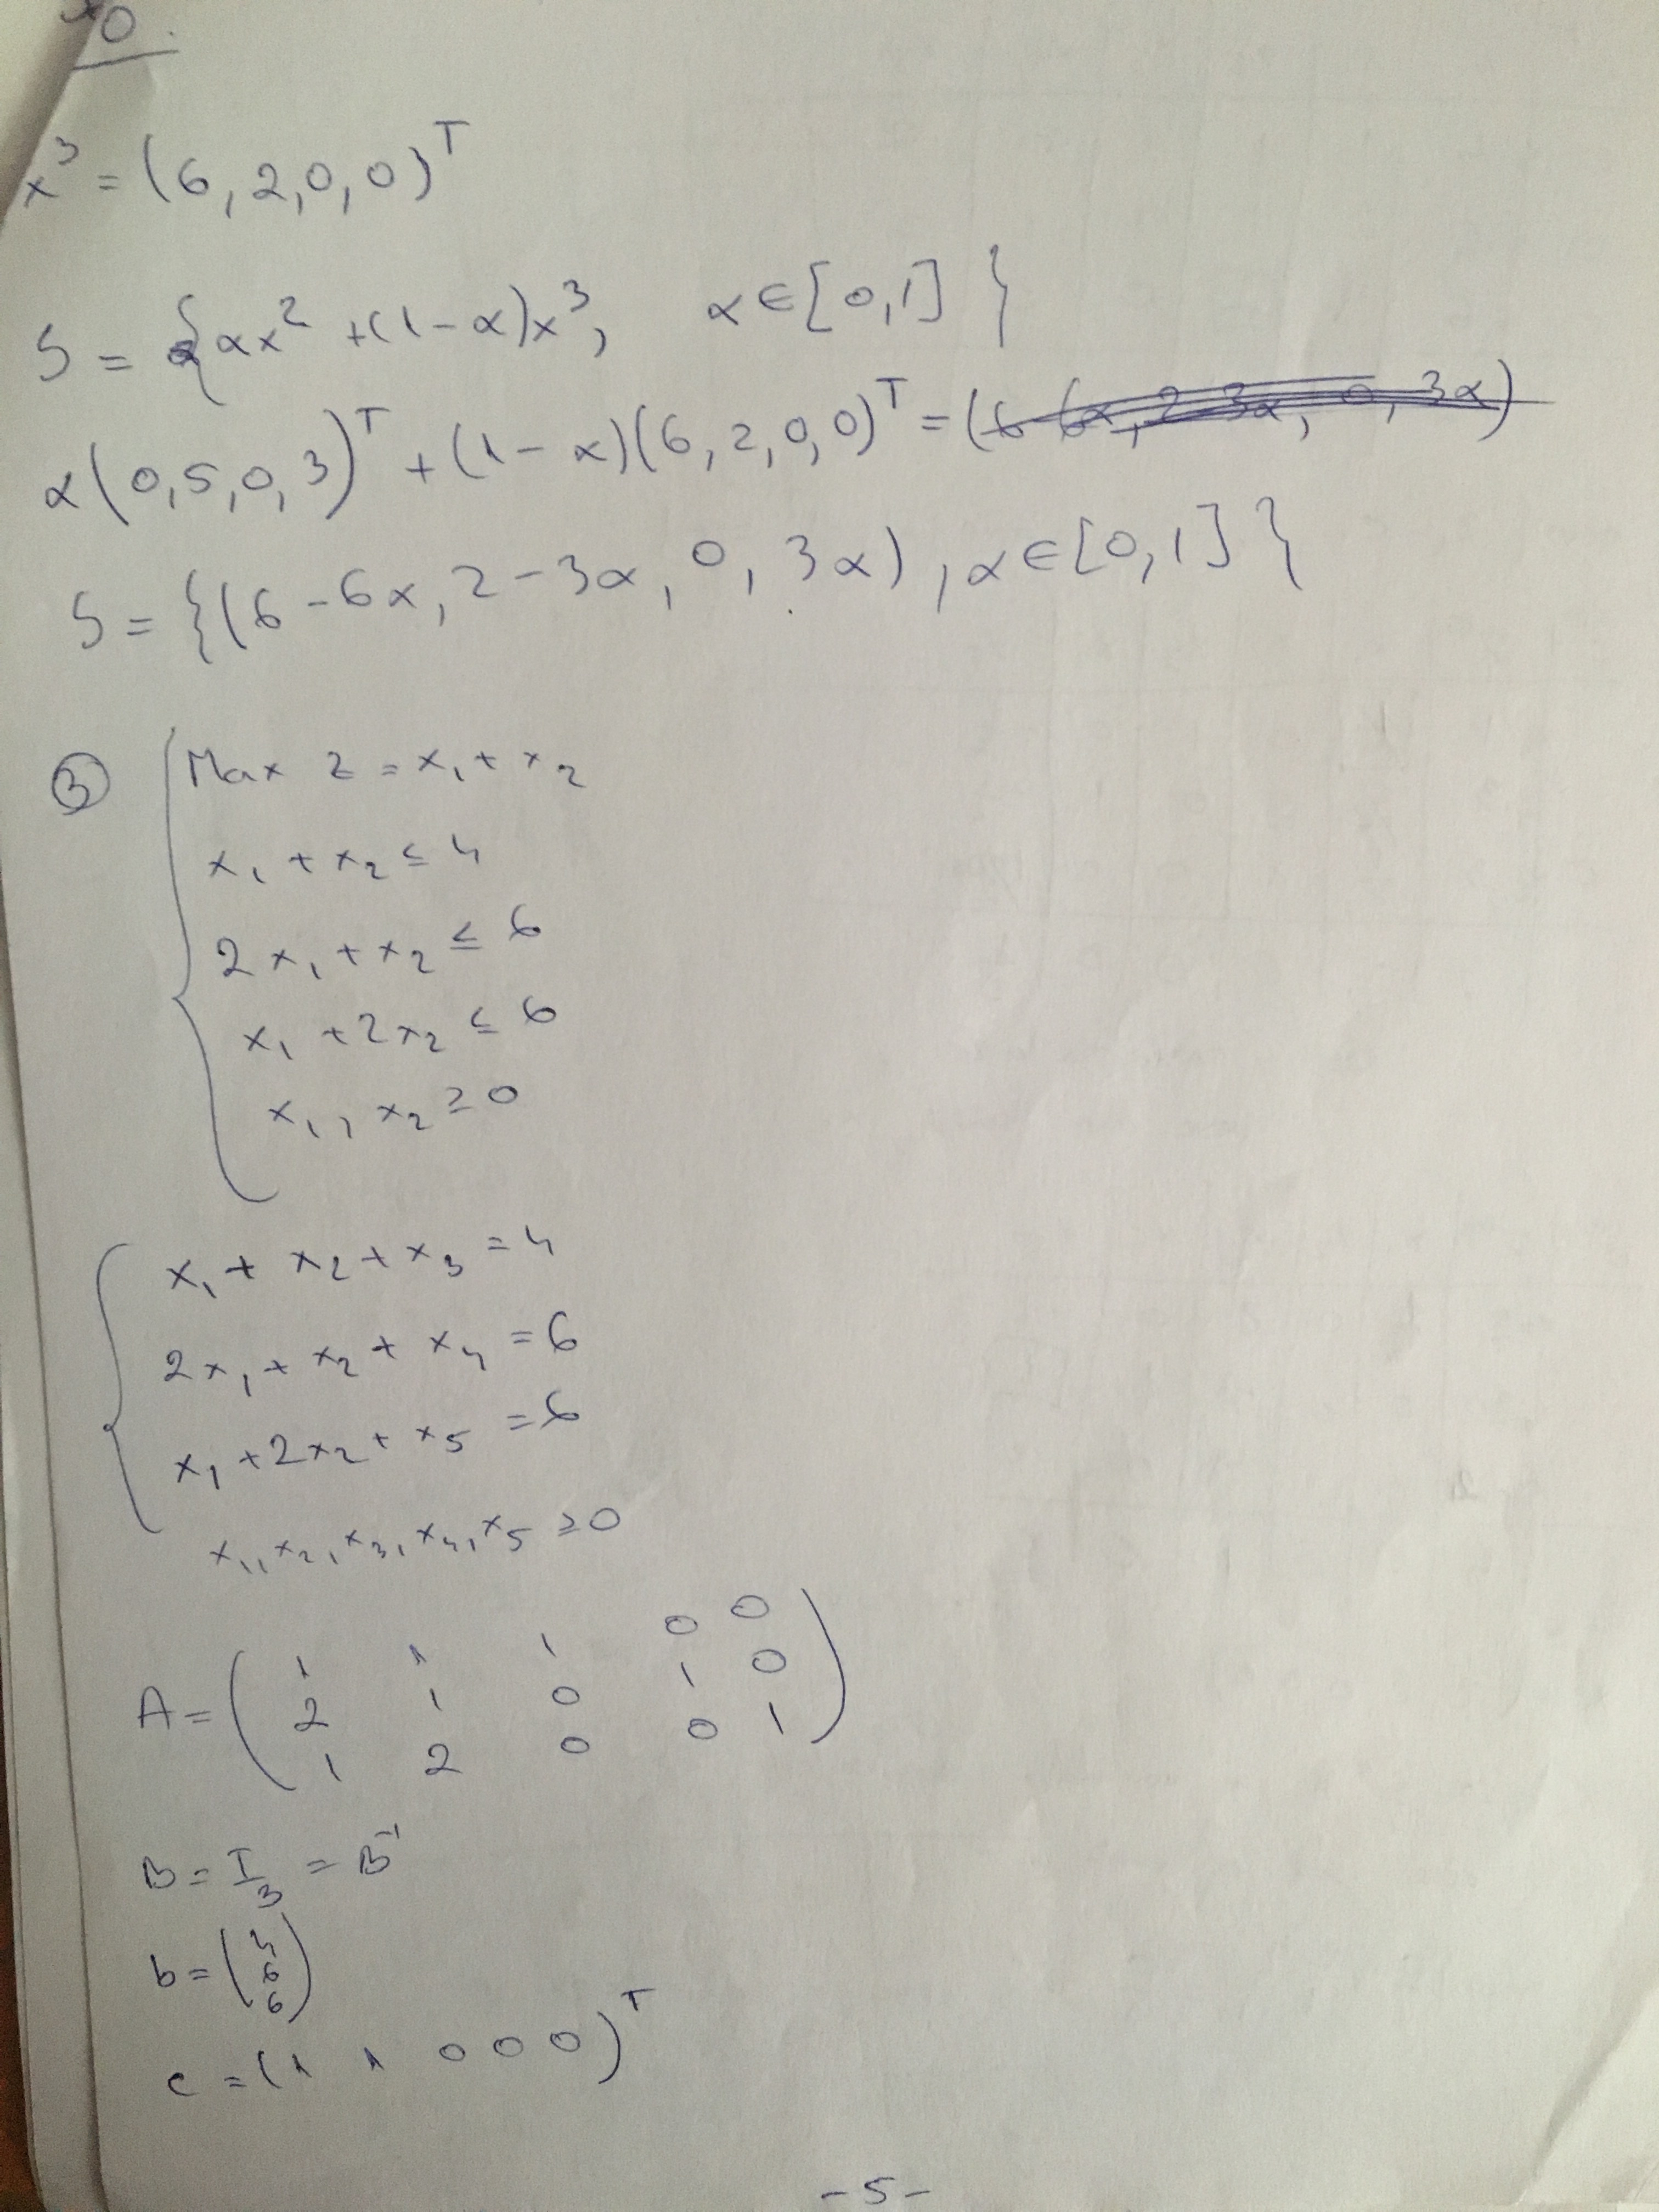 0.
x³ = (6, 2, 0, 0)ᵀ
S = {αx² + (1-α)x³, α∈[0,1] }
α(0,5,0,3)ᵀ + (1-α)(6,2,0,0)ᵀ = (6-6α, 2-3α, 0, 3α)
S = {(6-6α, 2-3α, 0, 3α), α∈[0,1] }
③ Max Z = x₁ + x₂
x₁ + x₂ ≤ 4
2x₁ + x₂ ≤ 6
x₁ + 2x₂ ≤ 6
x₁, x₂ ≥ 0
x₁ + x₂ + x₃ = 4
2x₁ + x₂ + x₄ = 6
x₁ + 2x₂ + x₅ = 6
x₁, x₂, x₃, x₄, x₅ ≥ 0
A = ( 1 1 1 0 0
2 1 0 1 0
1 2 0 0 1 )
B = I₃ = B⁻¹
b = ( 4
6
6 )
c = (1 1 0 0 0)ᵀ
-5-